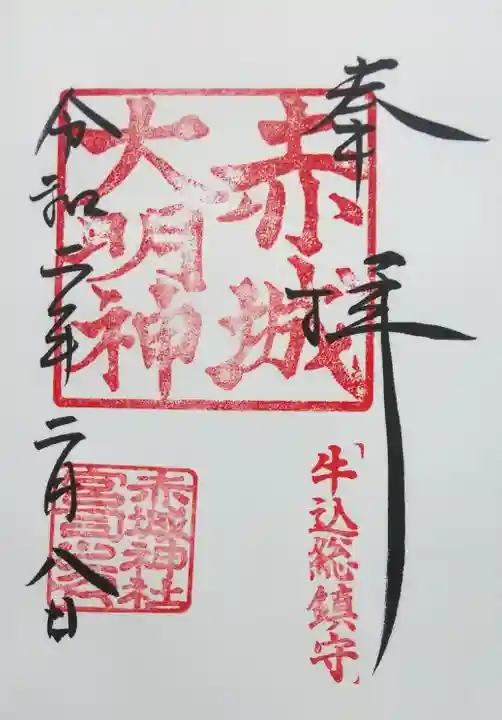 奉拝
牛込総鎮守
赤城
大明神
令和二年二月八日
赤城神社
宮司之印